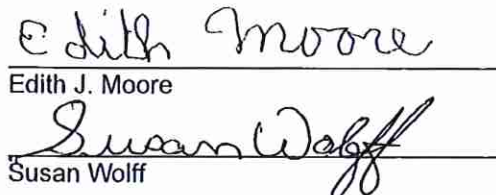 Edith Moore
Edith J. Moore
Susan Wolff
Susan Wolff